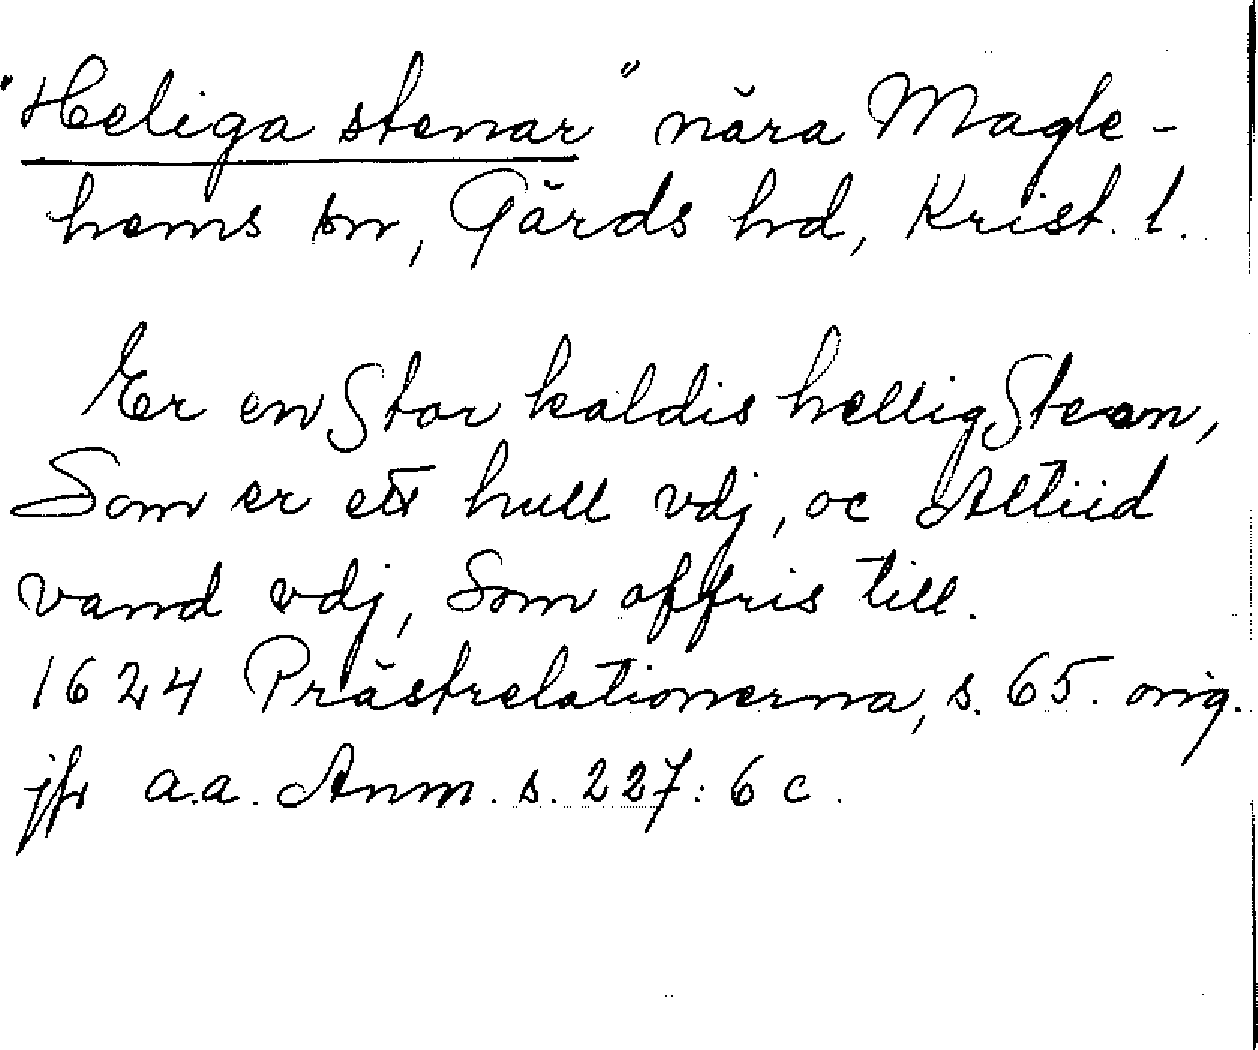 "Heliga stenar" nära Magle-
hems sn, Gärds hd, Krist. l.
Er en Stor kaldis hellig Steen,
Som er ett hull vdj, oc Altiid
vand vdj, Som offris till.
1624 Prästrelationerna, s. 65. orig.
jfr a.a. Anm. s. 227: 6 c.